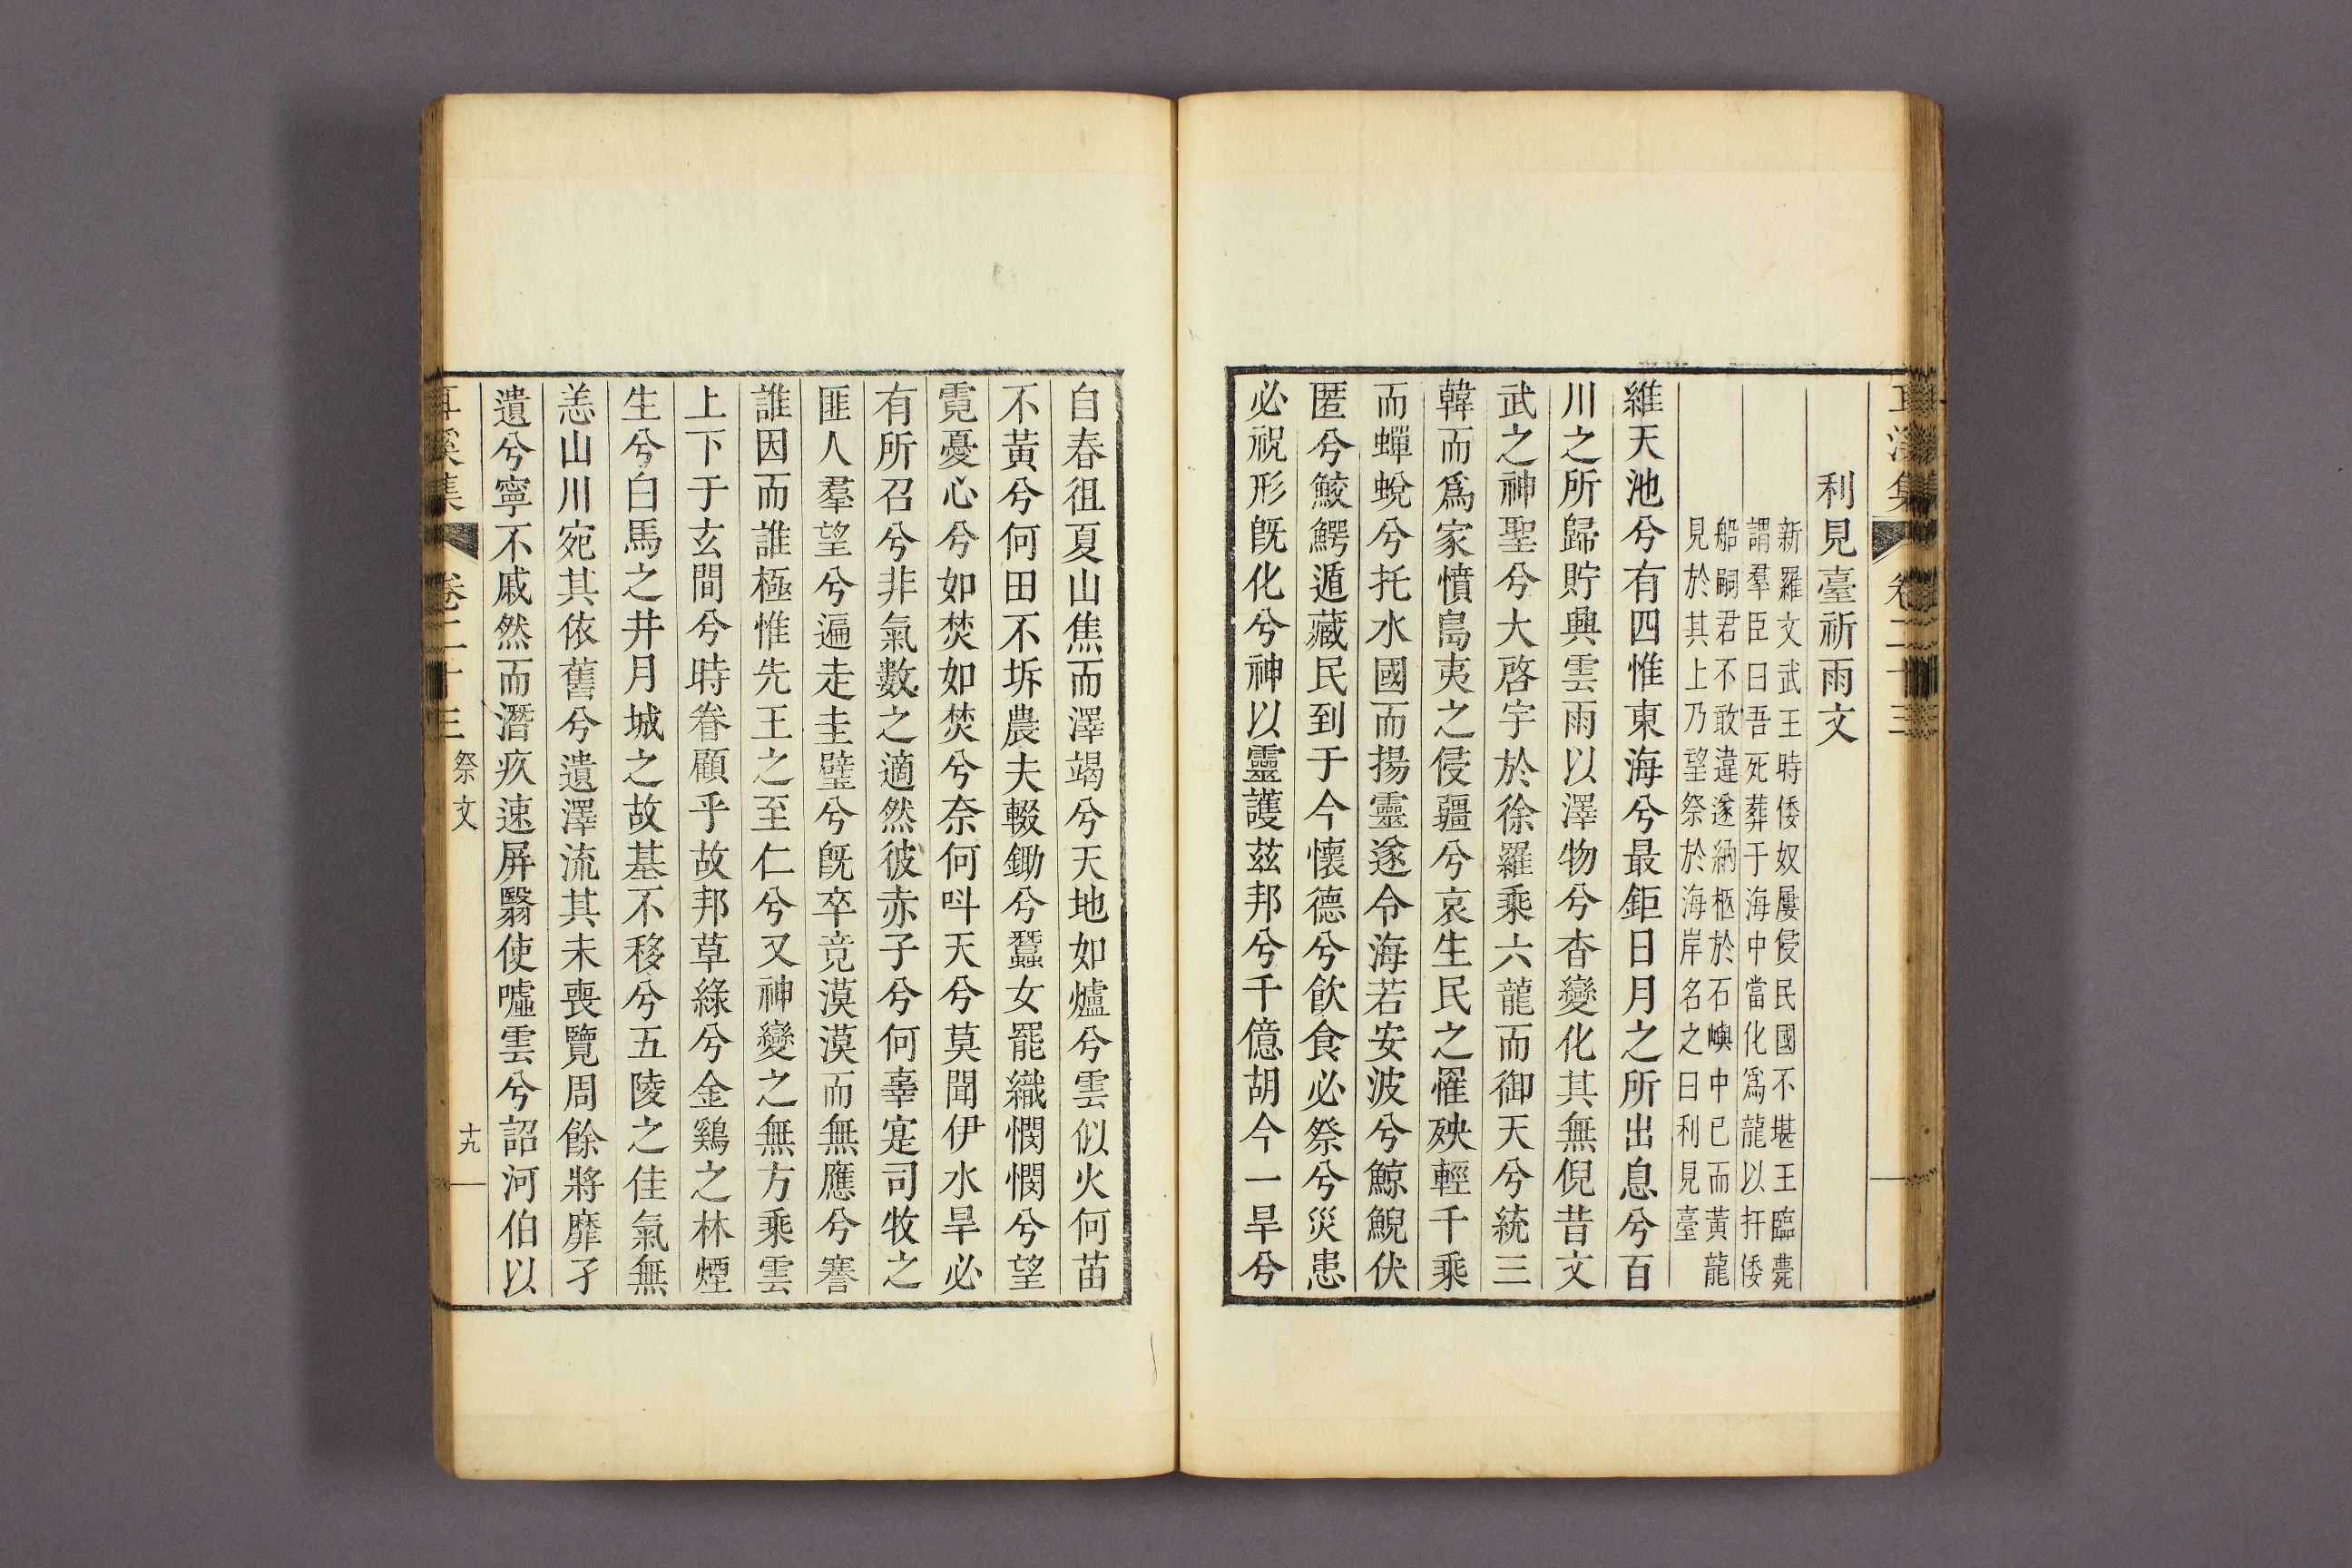 利見臺祈雨文
新羅文武王時倭奴屢侵民國不堪王臨薨
謂羣臣曰吾死葬于海中當化爲龍以扞倭
船嗣君不敢違遂納柩於石嶼中已而黃龍
見於其上乃望祭於海岸名之曰利見臺
維天池兮有四惟東海兮最鉅日月之所出息兮百
川之所歸貯興雲雨以澤物兮杳變化其無倪昔文
武之神聖兮大啓宇於徐羅乘六龍而御天兮統三
韓而爲家憤島夷之侵疆兮哀生民之罹殃輕千乘
而蟬蛻兮托水國而揚靈遂令海若安波兮鯨鯢伏
匿兮鮫鰐遁藏民到于今懷德兮飮食必祭兮災患
必祝形旣化兮神以靈護茲邦兮千億胡今一旱兮
自春徂夏山焦而澤竭兮天地如爐兮雲似火何苗
不黃兮何田不坼農夫輟鋤兮蠶女罷織憫憫兮望
霓憂心兮如焚如焚兮奈何呌天兮莫聞伊水旱必
有所召兮非氣數之適然彼赤子兮何辜寔司牧之
匪人羣望兮遍走圭璧兮旣卒竞漠漠而無應兮謇
誰因而誰極惟先王之至仁兮又神變之無方乘雲
上下于玄間兮時眷顧乎故邦草綠兮金鷄之林煙
生兮白馬之井月城之故基不移兮五陵之佳氣無
恙山川宛其依舊兮遺澤流其未喪覽周餘將靡孑
遺兮寧不戚然而潛疚速屏翳使噓雲兮詔河伯以
耳溪集
卷二十三
祭文
十九